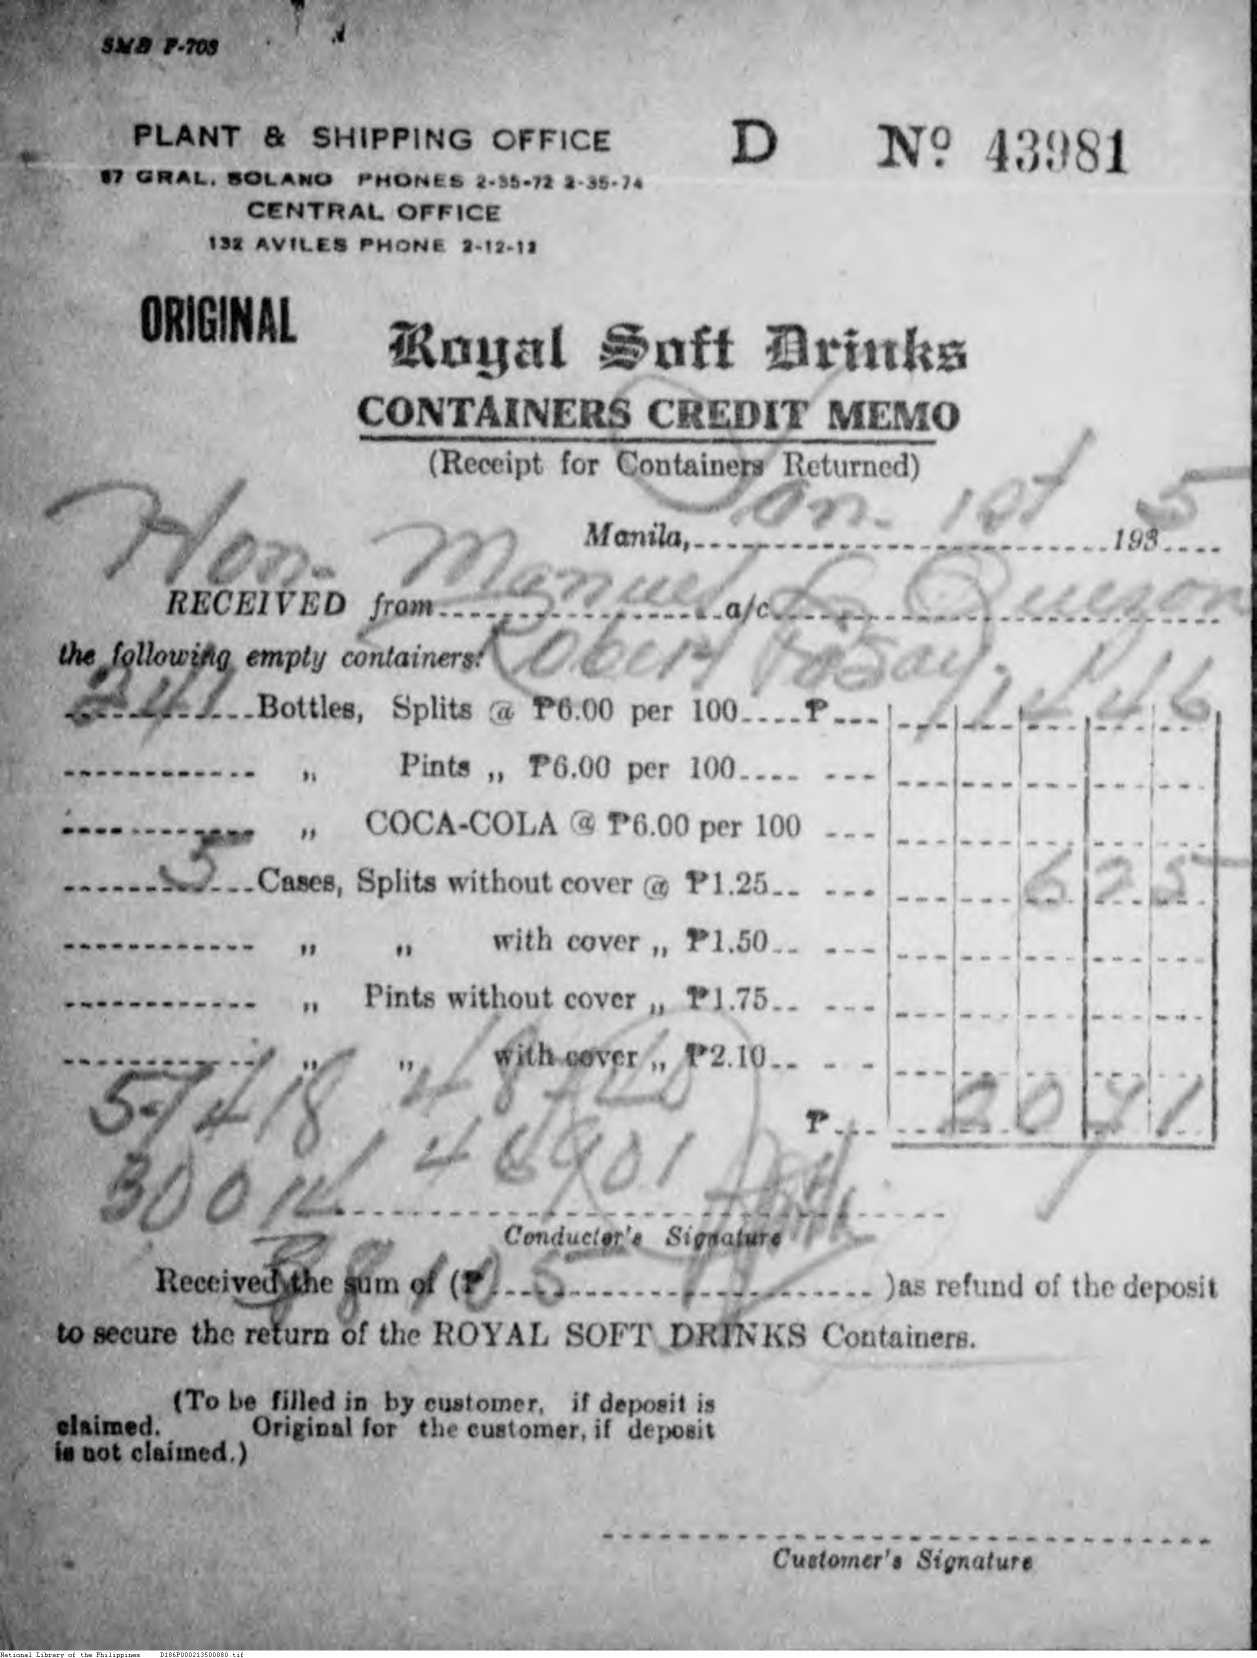 SMB F-703
PLANT & SHIPPING OFFICE
87 GRAL. SOLANO PHONES 2-35-72 2-35-74
CENTRAL OFFICE
132 AVILES PHONE 2-12-12
D Nº 43981
ORIGINAL
Royal Soft Drinks
CONTAINERS CREDIT MEMO
(Receipt for Containers Returned)
Manila, Jan. 1st 193 5
RECEIVED from Hon. Manuel a/c L. Quezon
the following empty containers: Robert
241 Bottles, Splits @ ₱6.00 per 100 ₱ 1446
„ Pints „ ₱6.00 per 100
„ COCA-COLA @ ₱6.00 per 100
5 Cases, Splits without cover @ ₱1.25 625
„ „ with cover „ ₱1.50
„ Pints without cover „ ₱1.75
„ „ with cover „ ₱2.10
₱ 2071
57418 48740
30014 46901
Conductor's Signature
Received the sum of (₱ )as refund of the deposit
to secure the return of the ROYAL SOFT DRINKS Containers.
(To be filled in by customer, if deposit is
claimed. Original for the customer, if deposit
is not claimed.)
Customer's Signature
National Library of the Philippines D186P000213500080.tif